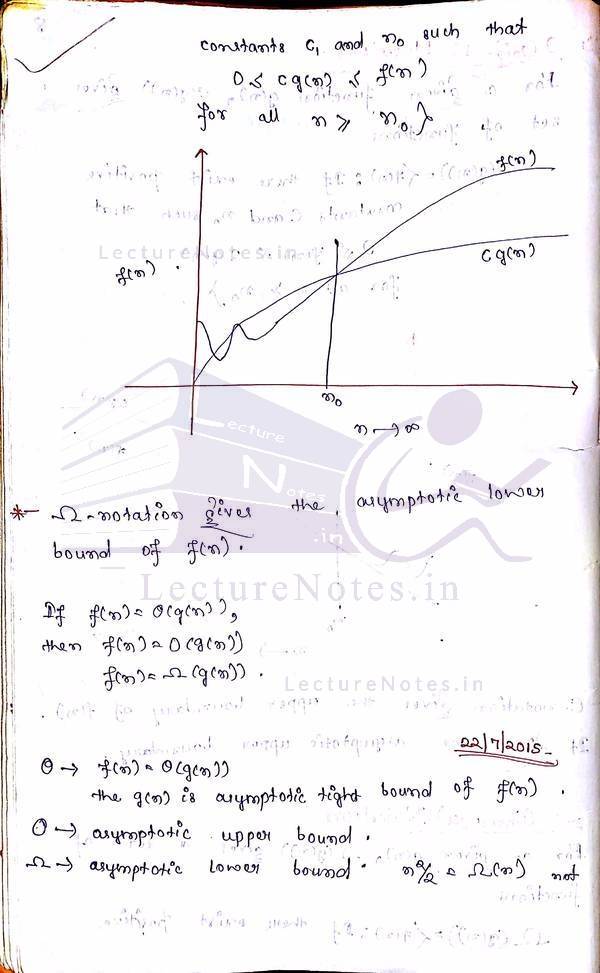 constants C, and n₀ such that
0 ≤ cg(n) ≤ f(n)
for all n ≥ n₀}
f(n)
LectureNotes.in
f(n)
Cg(n)
n₀
n → ∞
Lecture
Notes
.in
*- Ω-notation gives the asymptotic lower
bound of f(n).
LectureNotes.in
If f(n) = Θ(g(n)),
then f(n) = O(g(n))
f(n) = Ω(g(n)).
LectureNotes.in
22/7/2015
Θ → f(n) = Θ(g(n))
the g(n) is asymptotic tight bound of f(n).
O → asymptotic upper bound.
Ω → asymptotic lower bound. n²/2 = Ω(n) not